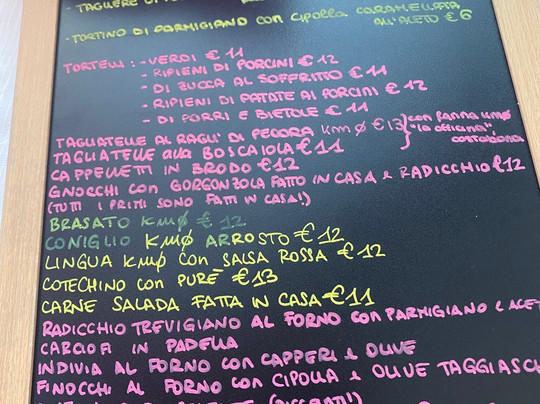 - TAGLIERE DI
- TORTINO DI PARMIGIANO CON CIPOLLA CARAMELLATA
ALL'ACETO € 6
TORTELLI: - VERDI € 11
- RIPIENI DI PORCINI € 12
- DI ZUCCA AL SOFFRITTO € 11
- RIPIENI DI PATATE AI PORCINI € 12
- DI PORRI E BIETOLE € 11
TAGLIATELLE AL RAGU' DI PECORA KmØ € 13 } con farina KmØ
TAGLIATELLE alla BOSCAIOLA € 11
CAPPELLETTI IN BRODO € 12
GNOCCHI con GORGONZOLA FATTO IN CASA e RADICCHIO € 12
(TUTTI I PRIMI SONO FATTI IN CASA!)
BRASATO KmØ € 12
CONIGLIO KmØ ARROSTO € 12
LINGUA KmØ con SALSA ROSSA € 12
COTECHINO con PURE' € 13
CARNE SALADA FATTA IN CASA € 11
RADICCHIO TREVIGIANO AL FORNO con PARMIGIANO e ACET
CARCIOFI IN PADELLA
INDIVIA AL FORNO con CAPPERI e OLIVE
FINOCCHI AL FORNO con CIPOLLA e OLIVE TAGGIASCH